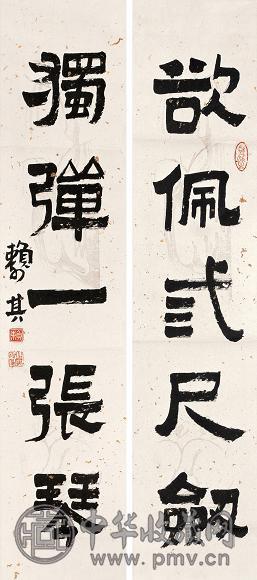 欲佩弍尺劒
獨彈一張琴
賴少其
中华收藏网
www.pmv.cn